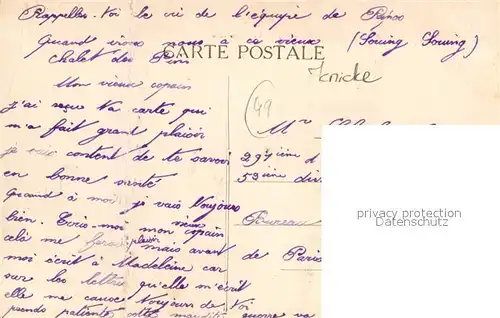 Rappelles-Voi le cri de l'équipe de
Quand irons nous à ce vieux (Souing Souing)
Chalet des Pins
CARTE POSTALE
Knicke
49
Mon vieux copain
J'ai reçue ta carte qui
m'a fait grand plaisir
je suis content de te savoir
en bonne santé
Quand à moi je vais Voujours
bien. Ecris-moi mon vieux copain
celà me ferai plaisir mais avant
moi écrit à Madeleine car
sur les lettres qu'elle m'écrit
elle me cause Voujours de Voi
patiente cette maudite guerre va
Mr
297ième d
53ième div
Bureau
de Paris
privacy protection
Datenschutz